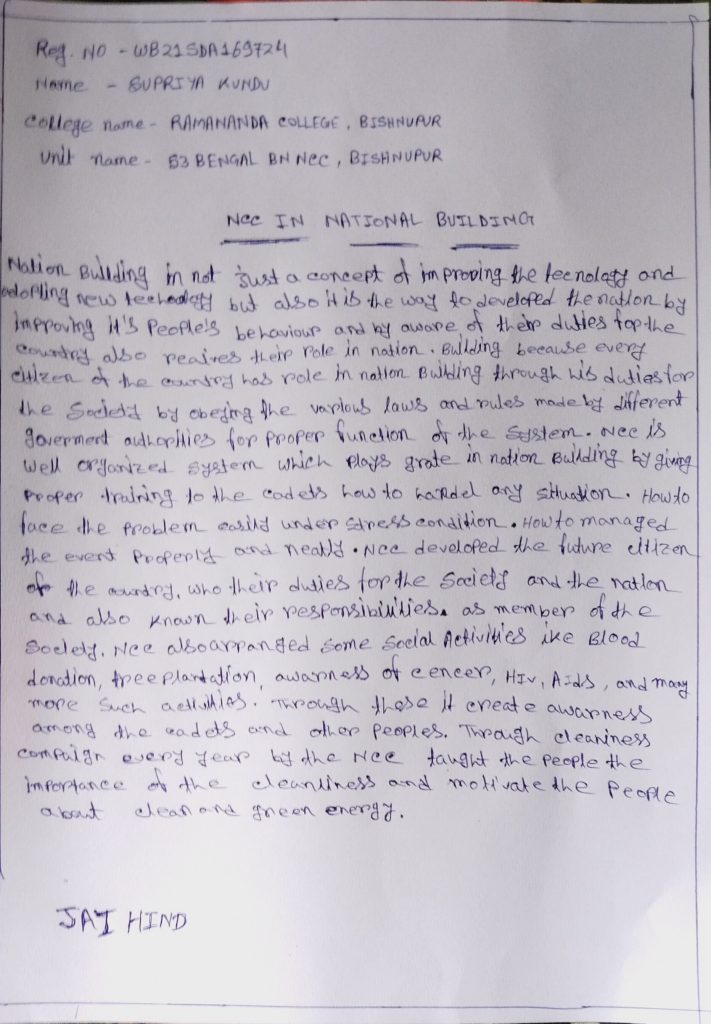 Reg. NO - WB21SDA169724
Name - SUPRIYA KUNDU
College name - RAMANANDA COLLEGE, BISHNUPUR
Unit name - 53 BENGAL BN NCC, BISHNUPUR
NCC IN NATIONAL BUILDING
Nation Building in not just a concept of improving the tecnology and
adopting new technology but also it is the way to developed the nation by
improving it's People's behaviour and by aware of their duties for the
country also reaires their role in nation. Building because every
citizen of the country has role in nation Building through his duties for
the Society by obeying the various laws and rules made by different
goverment authorities for proper function of the system. Ncc is
well organized system which plays grate in nation Building by giving
proper training to the cadets how to handel any situation. How to
face the problem easily under stress condition. How to managed
the event Properly and neatly. Ncc developed the future citizen
of the country, who their duties for the Society and the nation
and also known their responsibilities. as member of the
Society. Ncc also arranged some social Activities ike Blood
donation, tree plantation, awarness of cencer, HIV, Aids, and many
more such activities. Through these it create awarness
among the cadets and other peoples. Through cleaniness
compaign every year by the Ncc taught the people the
importance of the cleanliness and motivate the people
about clean and green energy.
JAI HIND